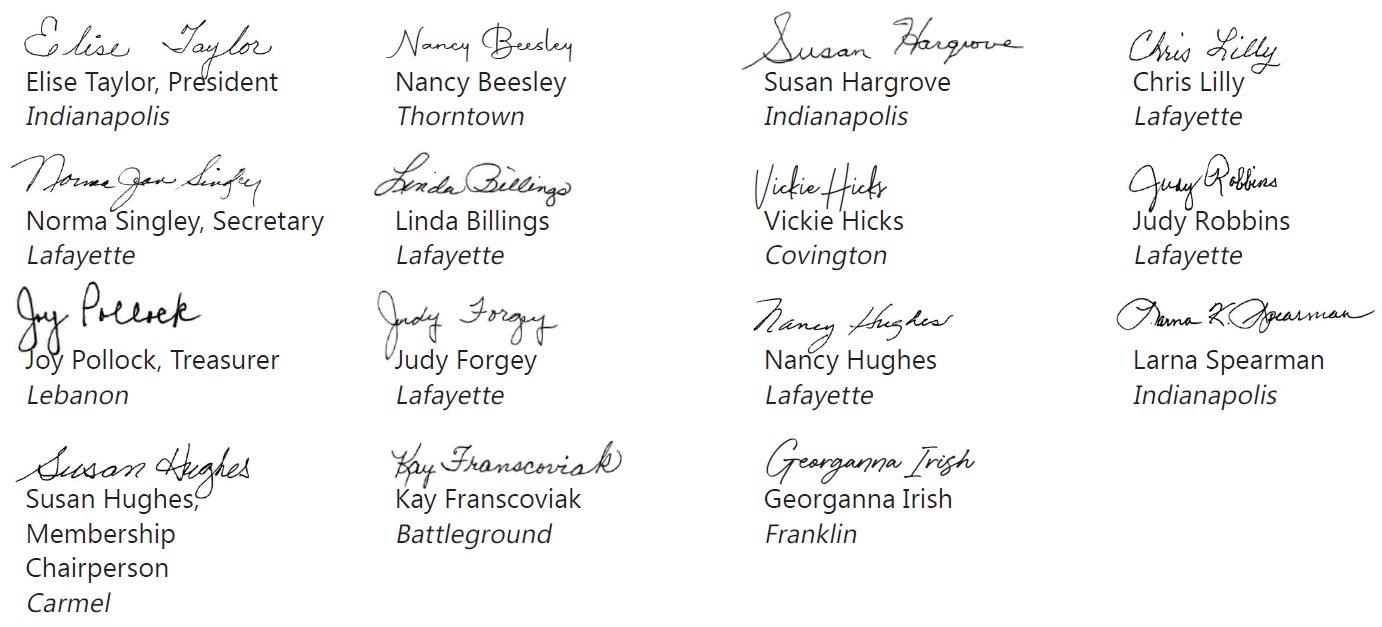 Elise Taylor
Elise Taylor, President
Indianapolis
Nancy Beesley
Nancy Beesley
Thorntown
Susan Hargrove
Susan Hargrove
Indianapolis
Chris Lilly
Chris Lilly
Lafayette
Norma Jan Singley
Norma Singley, Secretary
Lafayette
Linda Billings
Linda Billings
Lafayette
Vickie Hicks
Vickie Hicks
Covington
Judy Robbins
Judy Robbins
Lafayette
Joy Pollock
Joy Pollock, Treasurer
Lebanon
Judy Forgey
Judy Forgey
Lafayette
Nancy Hughes
Nancy Hughes
Lafayette
Larna K. Spearman
Larna Spearman
Indianapolis
Susan Hughes
Susan Hughes,
Membership
Chairperson
Carmel
Kay Franscoviak
Kay Franscoviak
Battleground
Georganna Irish
Georganna Irish
Franklin